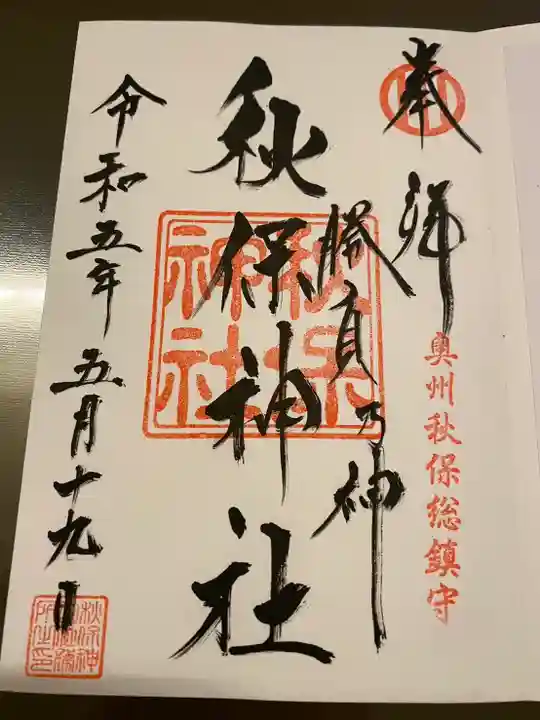 奉拝
奥州秋保総鎮守
勝負乃神
秋保神社
秋保
神社
令和五年五月十九日